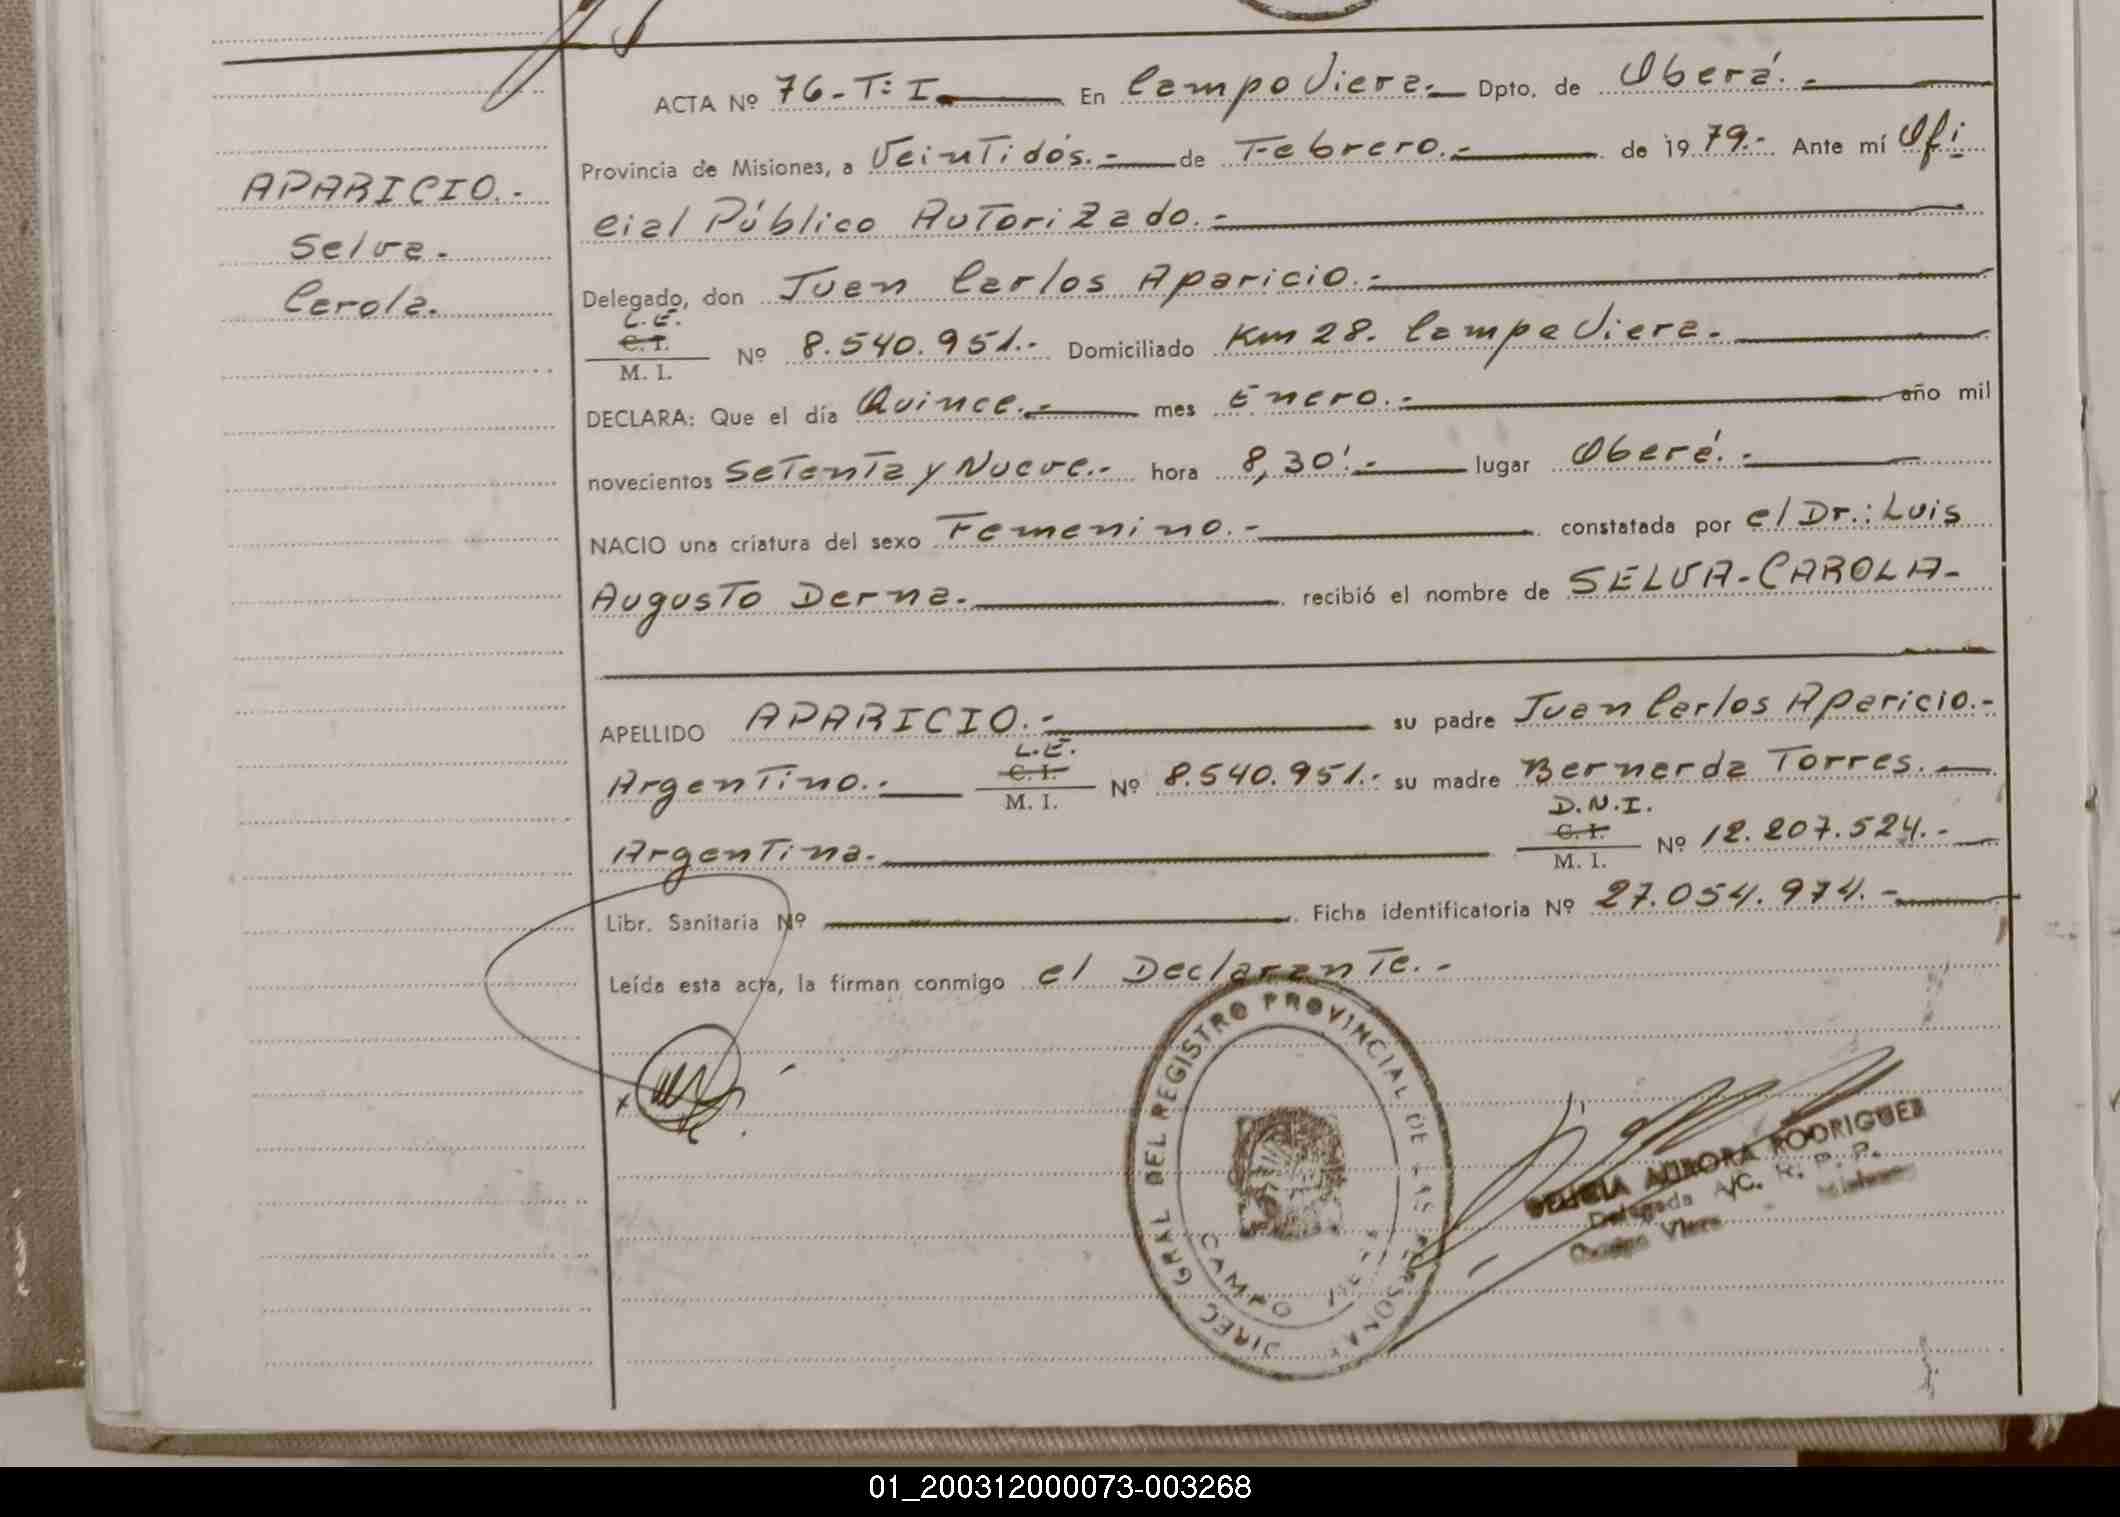 ACTA Nº 76-T: I. En Campo Viera.- Dpto. de Oberá.-
Provincia de Misiones, a Veintidós.- de Febrero.- de 1979.- Ante mí Ofi
cial Público Autorizado.-
APARICIO.-
Selva.
Carola.
Delegado, don Juan Carlos Aparicio.-
L.E.
C. I.
M. I.
Nº 8.540.951.- Domiciliado Km 28. Campo Viera.
DECLARA: Que el día Quince.- mes Enero.- año mil
novecientos Setenta y Nueve.- hora 8,30'.- lugar Oberá.-
NACIO una criatura del sexo Femenino.- constatada por el Dr.: Luis
Augusto Derna. recibió el nombre de SELVA-CAROLA-
APELLIDO APARICIO.- su padre Juan Carlos Aparicio.-
L.E.
Argentino.- C. I. Nº 8.540.951.- su madre Bernarda Torres.-
M. I.
D.N.I.
Argentina. C. I. Nº 12.207.524.-
M. I.
Libr. Sanitaria Nº Ficha identificatoria Nº 27.054.974.-
Leída esta acta, la firman conmigo el Declarante.-
DIREC GRAL DEL REGISTRO PROVINCIAL DE LAS PERSONAS
CAMPO
AURORA RODRIGUEZ
Delegada A/C. R. P. P.
Campo Viera Misiones
01_200312000073-003268